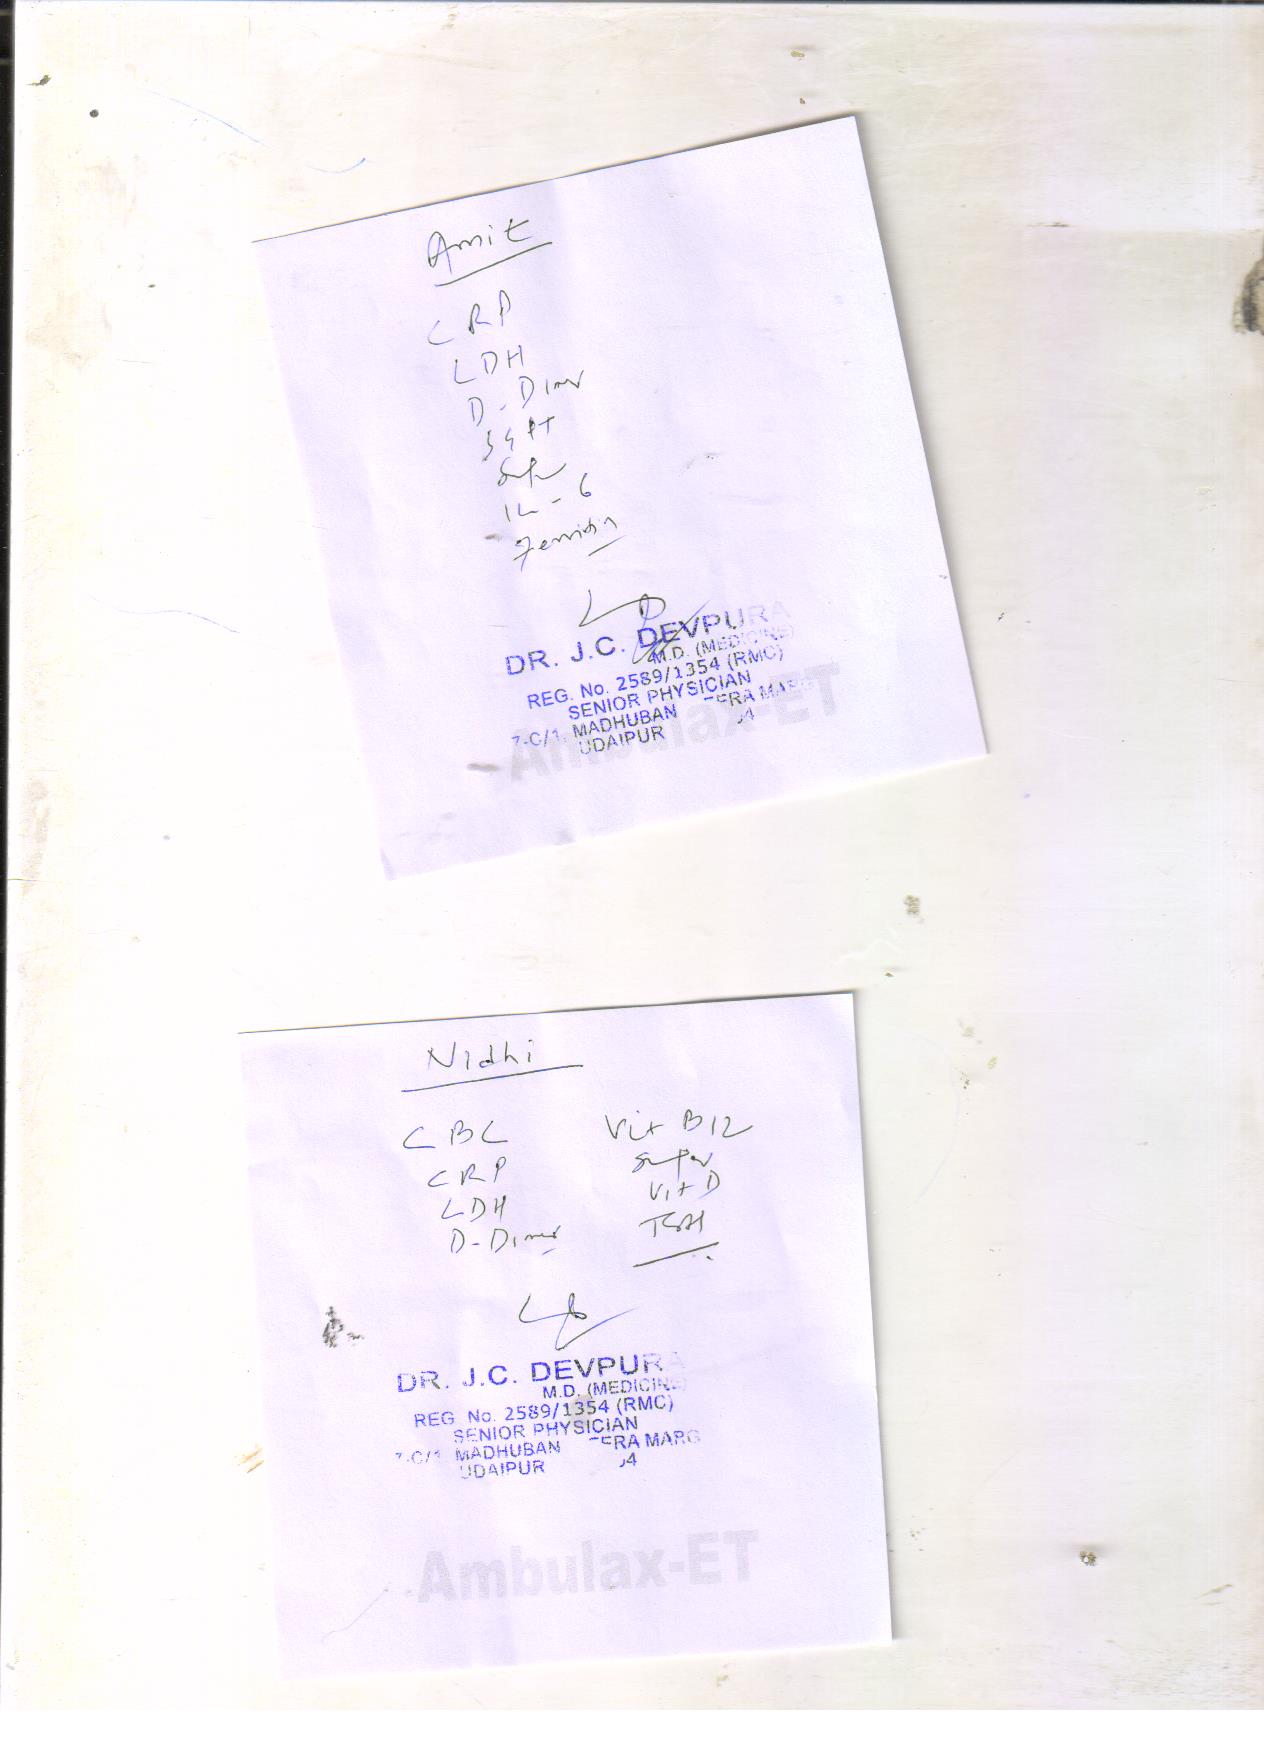 Amit
CRP
LDH
D-Dimer
SGPT
IL-6
Ferritin
DR. J.C. DEVPURA
M.D. (MEDICINE)
REG. No. 2589/1354 (RMC)
SENIOR PHYSICIAN
7-C/1, MADHUBAN ERA MARG
UDAIPUR 04
Ambulax-ET
Nidhi
CBC Vit B12
CRP Sugar
LDH Vit D
D-Dimer TSH
DR. J.C. DEVPURA
M.D. (MEDICINE)
REG. No. 2589/1354 (RMC)
SENIOR PHYSICIAN
7-C/1 MADHUBAN ERA MARG
UDAIPUR 04
Ambulax-ET